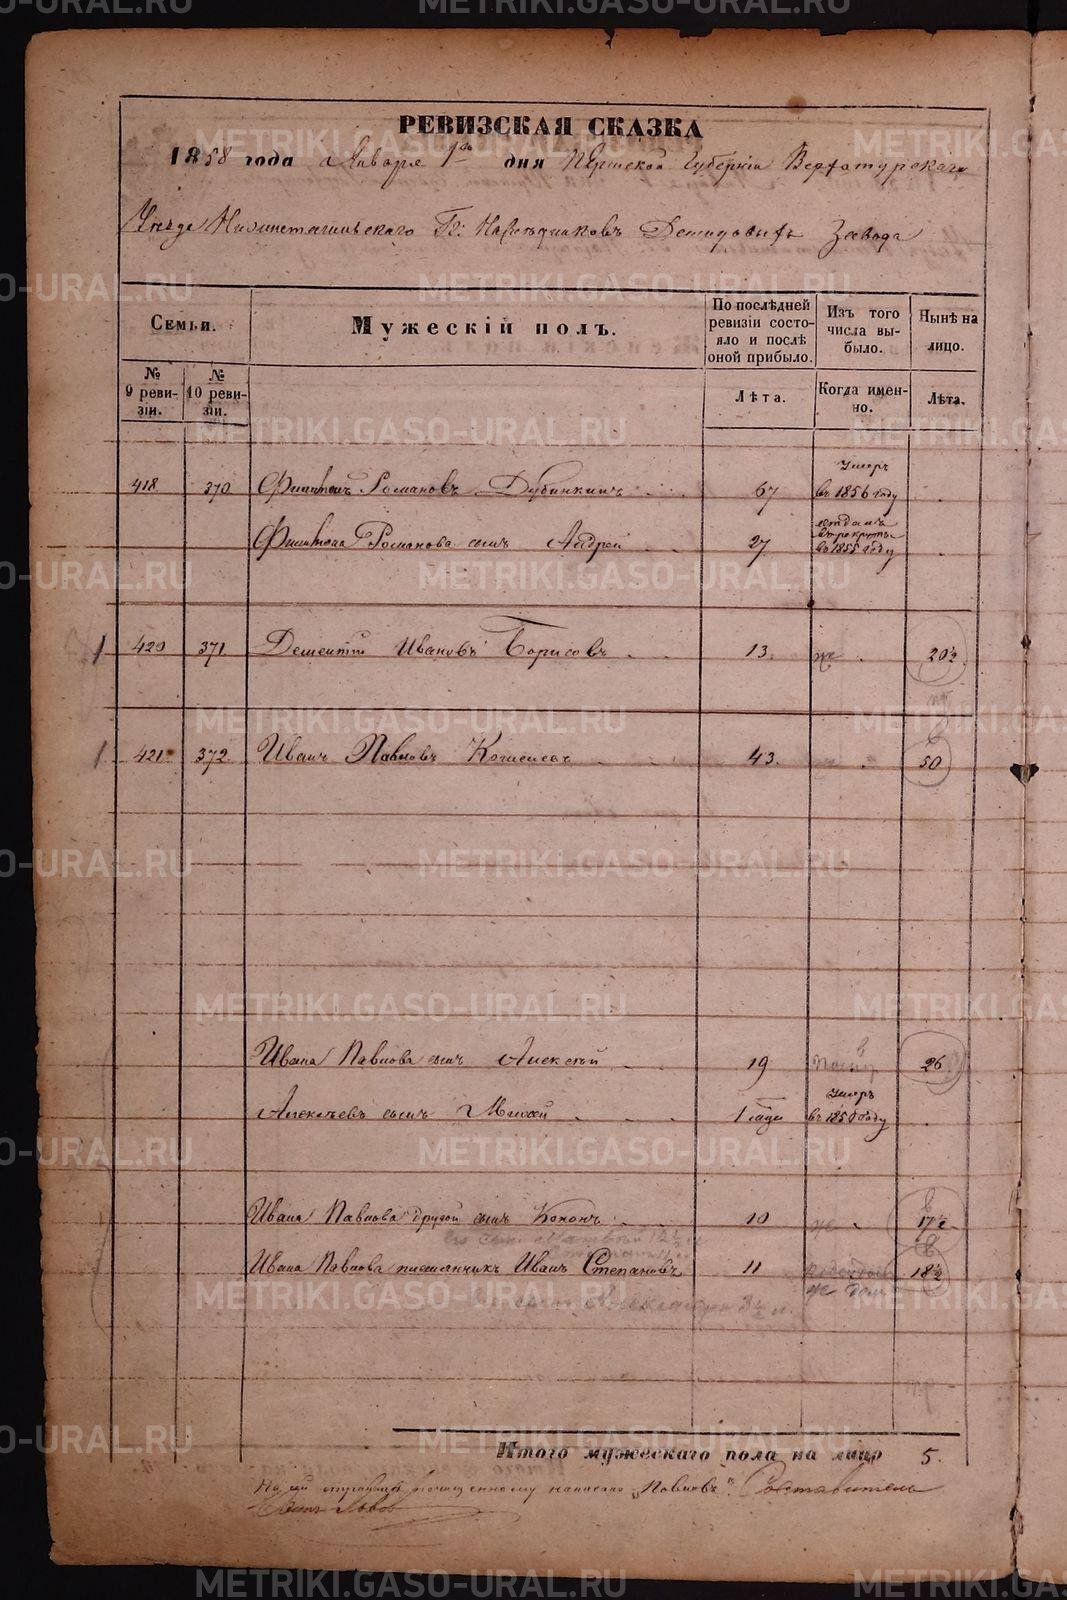 РЕВИЗСКАЯ СКАЗКА
1858 года Января 1го дня Пермской Губерніи Верхотурскаго
Уезда Нижнетагильскаго Гг: Наследниковъ Демидовыхъ Завода
Семьи.
Мужескій полъ.
По послѣдней ревизіи состояло и послѣ оной прибыло.
Изъ того числа выбыло.
Нынѣ на лицо.
№ 9 ревизіи.
№ 10 ревизіи.
Лѣта.
Когда именно.
Лѣта.
418 370 Романовъ Дубинкинъ 67 умеръ въ 1856 году
Романова сынъ Андрей 27 отданъ въ рекруты въ 1855 году
1 420 371 Дементій Ивановъ Борисовъ 13. 20½
1 421 372 Иванъ Павловъ 43. 50
Ивана Павлова сынъ Алексѣй 19 26
Алексѣевъ сынъ 1 года умеръ въ 1850 году
Ивана Павлова другой сынъ Кононъ 10 17½
Ивана Павлова племянникъ Иванъ Степановъ 11 18½
Александръ 3½
Итого мужескаго пола на лицо 5.
На сей страницѣ по написано „Павловъ" Составитель
METRIKI.GASO-URAL.RU